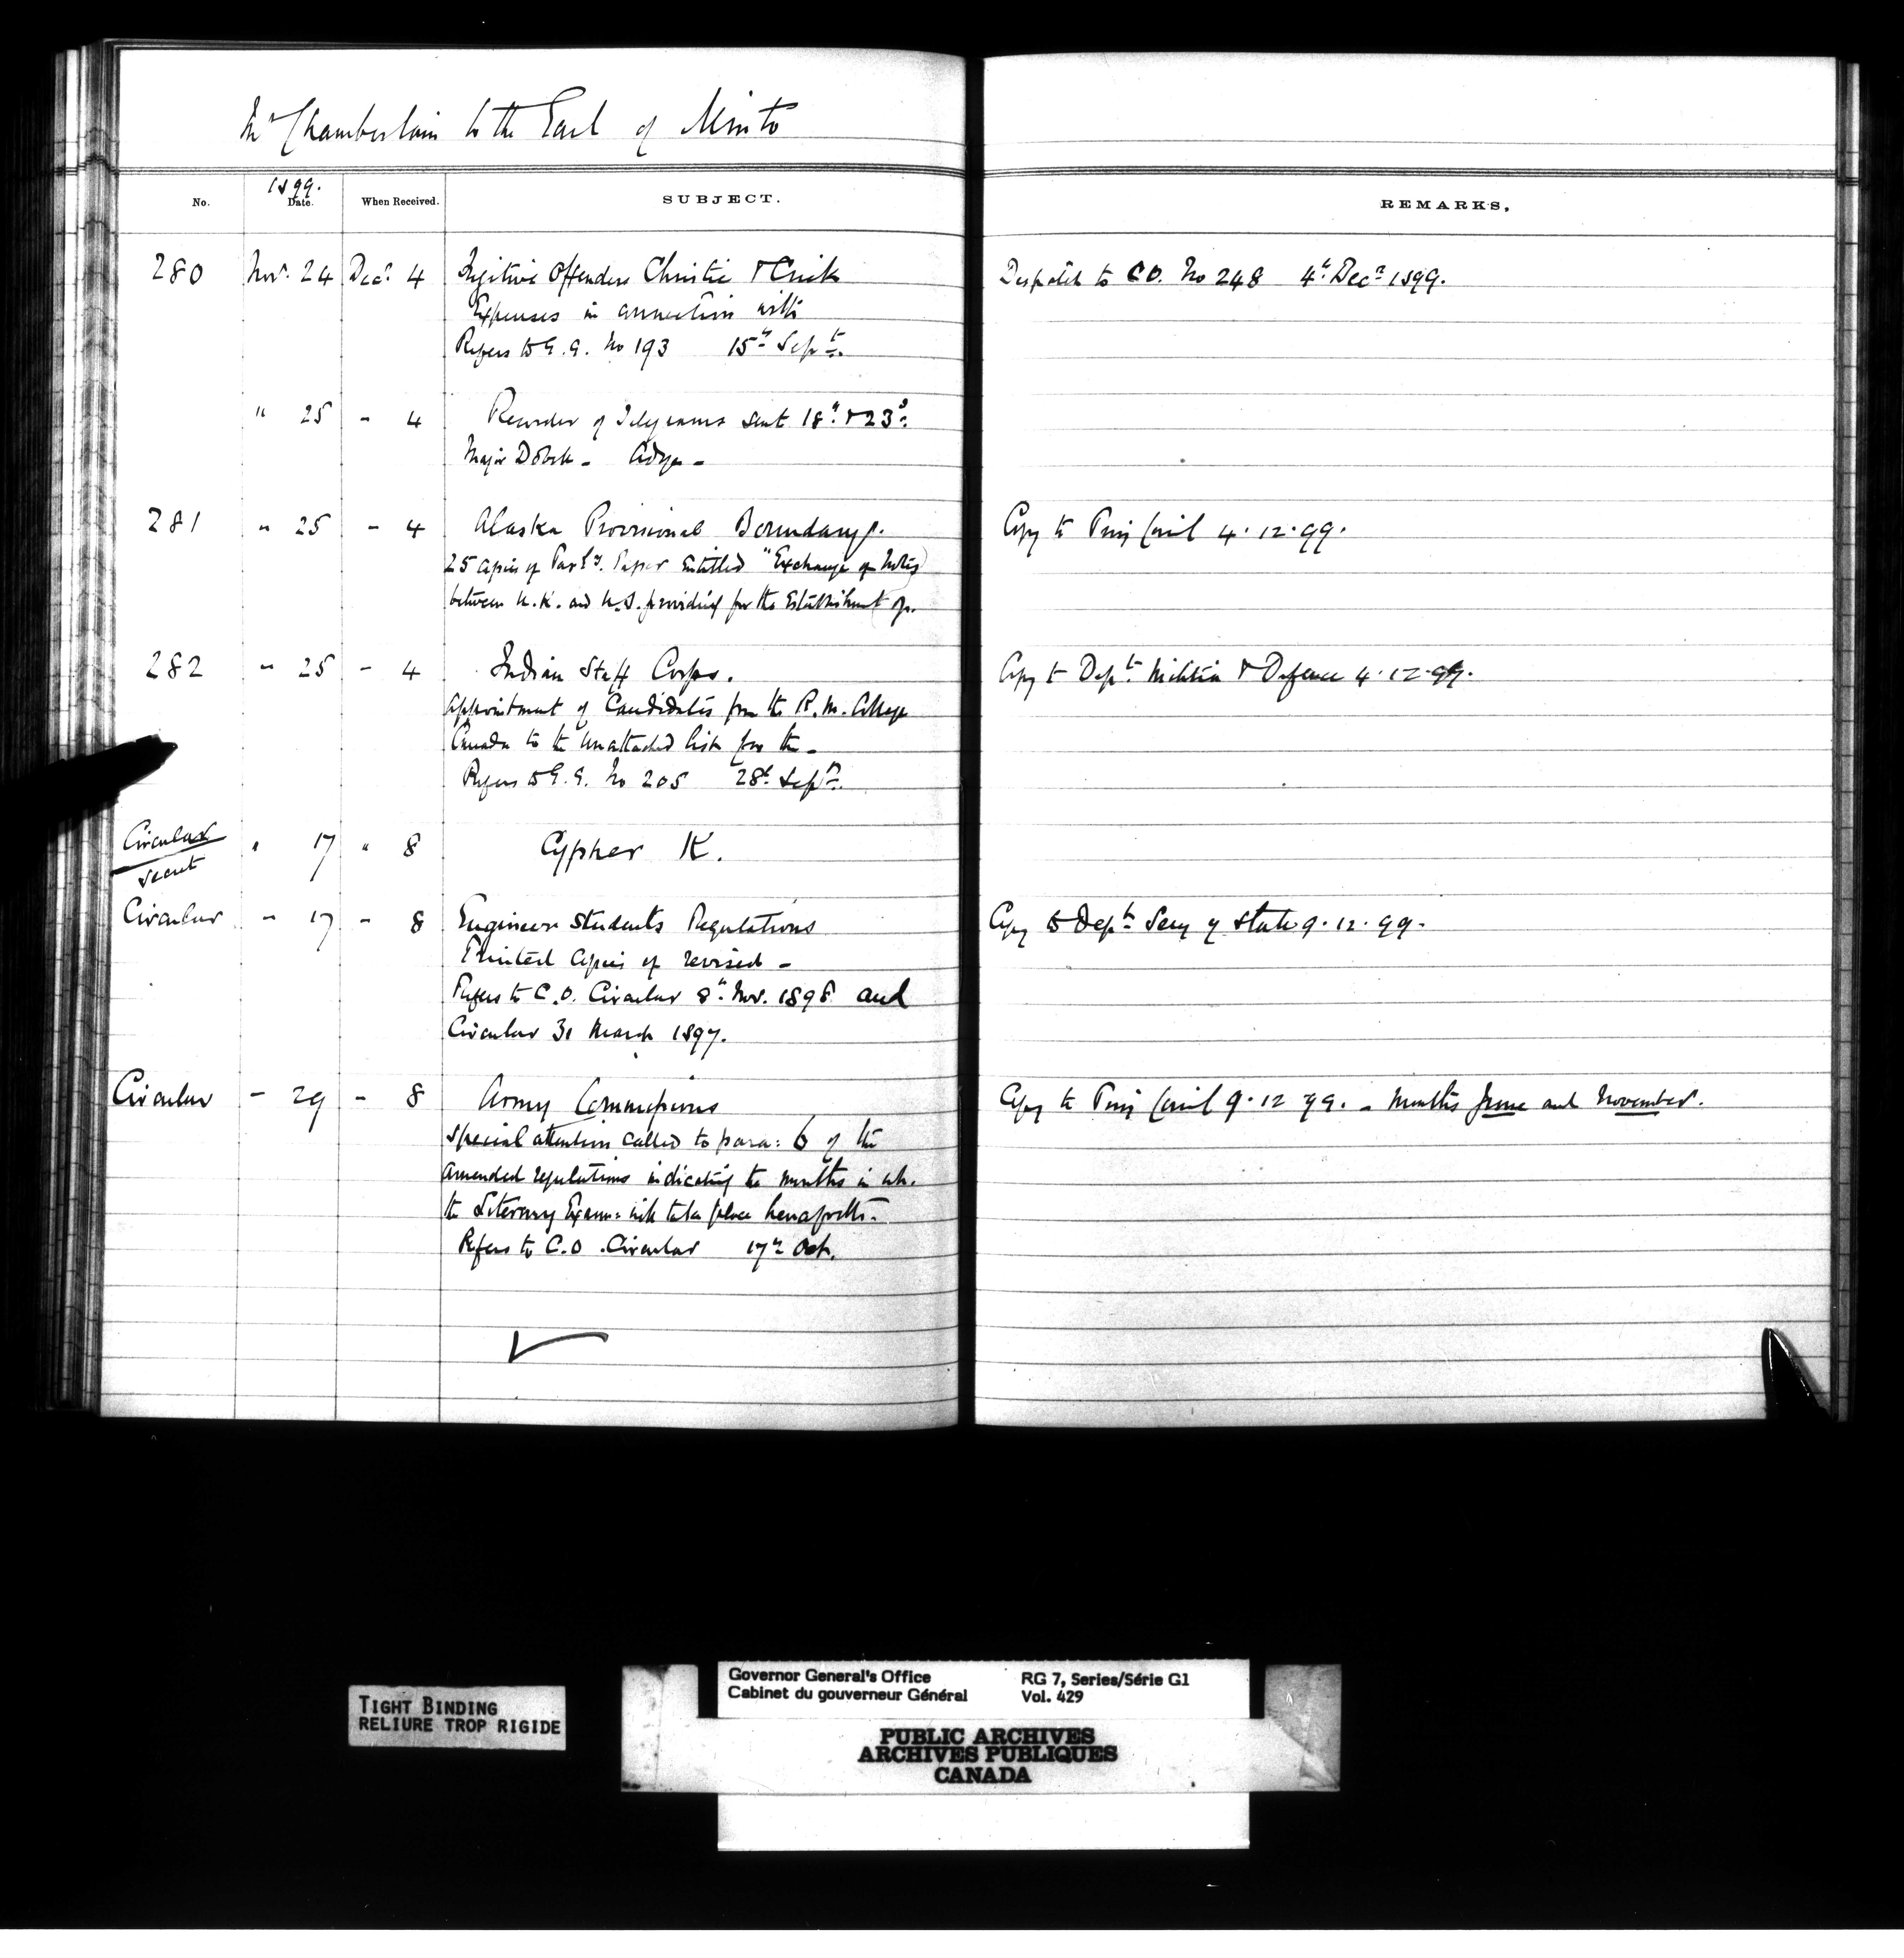 Mr Chamberlain to the Earl of Minto
No. 1899. Date. When Received. SUBJECT. REMARKS.
280 Novr. 24 Decr. 4 Fugitive Offenders Christie & Crick Despatch to C.O. No 248 4th Decr 1899.
Expenses in connection with
Refers to G.G. No 193 15th Sept.
" 25 - 4 Recorder of Telegrams sent 18th & 23d.
Major
281 " 25 - 4 Alaska Provisional Boundary. Copy to Privy Council 4.12.99.
25 copies of Parly. Paper Entitled "Exchange of Notes
between U.K. and U.S. providing for the Establishment of.
282 " 25 - 4 Indian Staff Corps. Copy to Dept. Militia & Defence 4.12.99.
Appointment of Candidates from the R.M. College
Canada to the unattached list for the -
Refers to G.G. No 205 28th Sept.
Circular
Secret " 17 " 8 Cypher K.
Circular - 17 - 8 Engineer Students Regulations Copy to Dept. Secy of State 9.12.99.
Printed copies of revised -
Refers to C.O. Circular 8th Nov. 1898 and
Circular 31 March 1897.
Circular - 29 - 8 Army Commissions Copy to Privy Council 9.12.99. - Months June and November.
Special attention called to para: 6 of the
amended regulations indicating the months in wh.
the Literary Exam: will take place henceforth.
Refers to C.O. Circular 17th Oct.
TIGHT BINDING
RELIURE TROP RIGIDE
Governor General's Office RG 7, Series/Série G1
Cabinet du gouverneur Général Vol. 429
PUBLIC ARCHIVES
ARCHIVES PUBLIQUES
CANADA